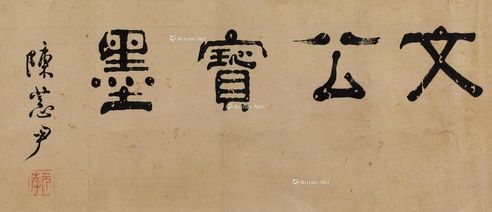 文公寶墨
陳恭尹
Artron.Net
Artron.Net
Artron.Net